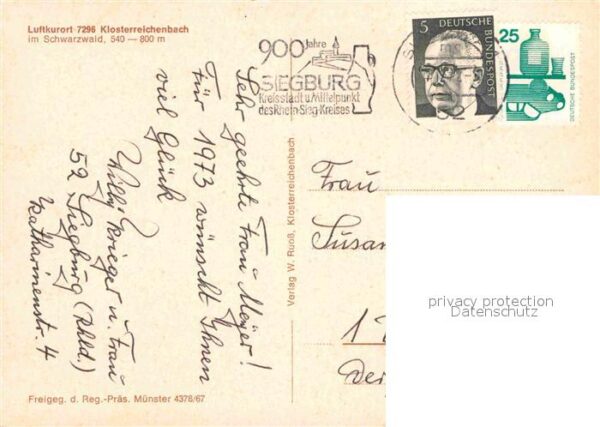 Luftkurort 7298 Klosterreichenbach
im Schwarzwald, 540 — 800 m
900 Jahre
SIEGBURG
Kreisstadt u. Mittelpunkt
des Rhein-Sieg-Kreises
5
DEUTSCHE
BUNDESPOST
25
DEUTSCHE BUNDESPOST
Sehr geehrte Frau Meyer!
Für 1973 wünscht Ihnen
viel Glück
Willy Krieger u. Frau
52 Siegburg (Rhld.)
Katharinenstr. 4
Verlag W. Ruoß, Klosterreichenbach
Frau
Susan
1
Der
privacy protection
Datenschutz
Freigeg. d. Reg.-Präs. Münster 4378/67